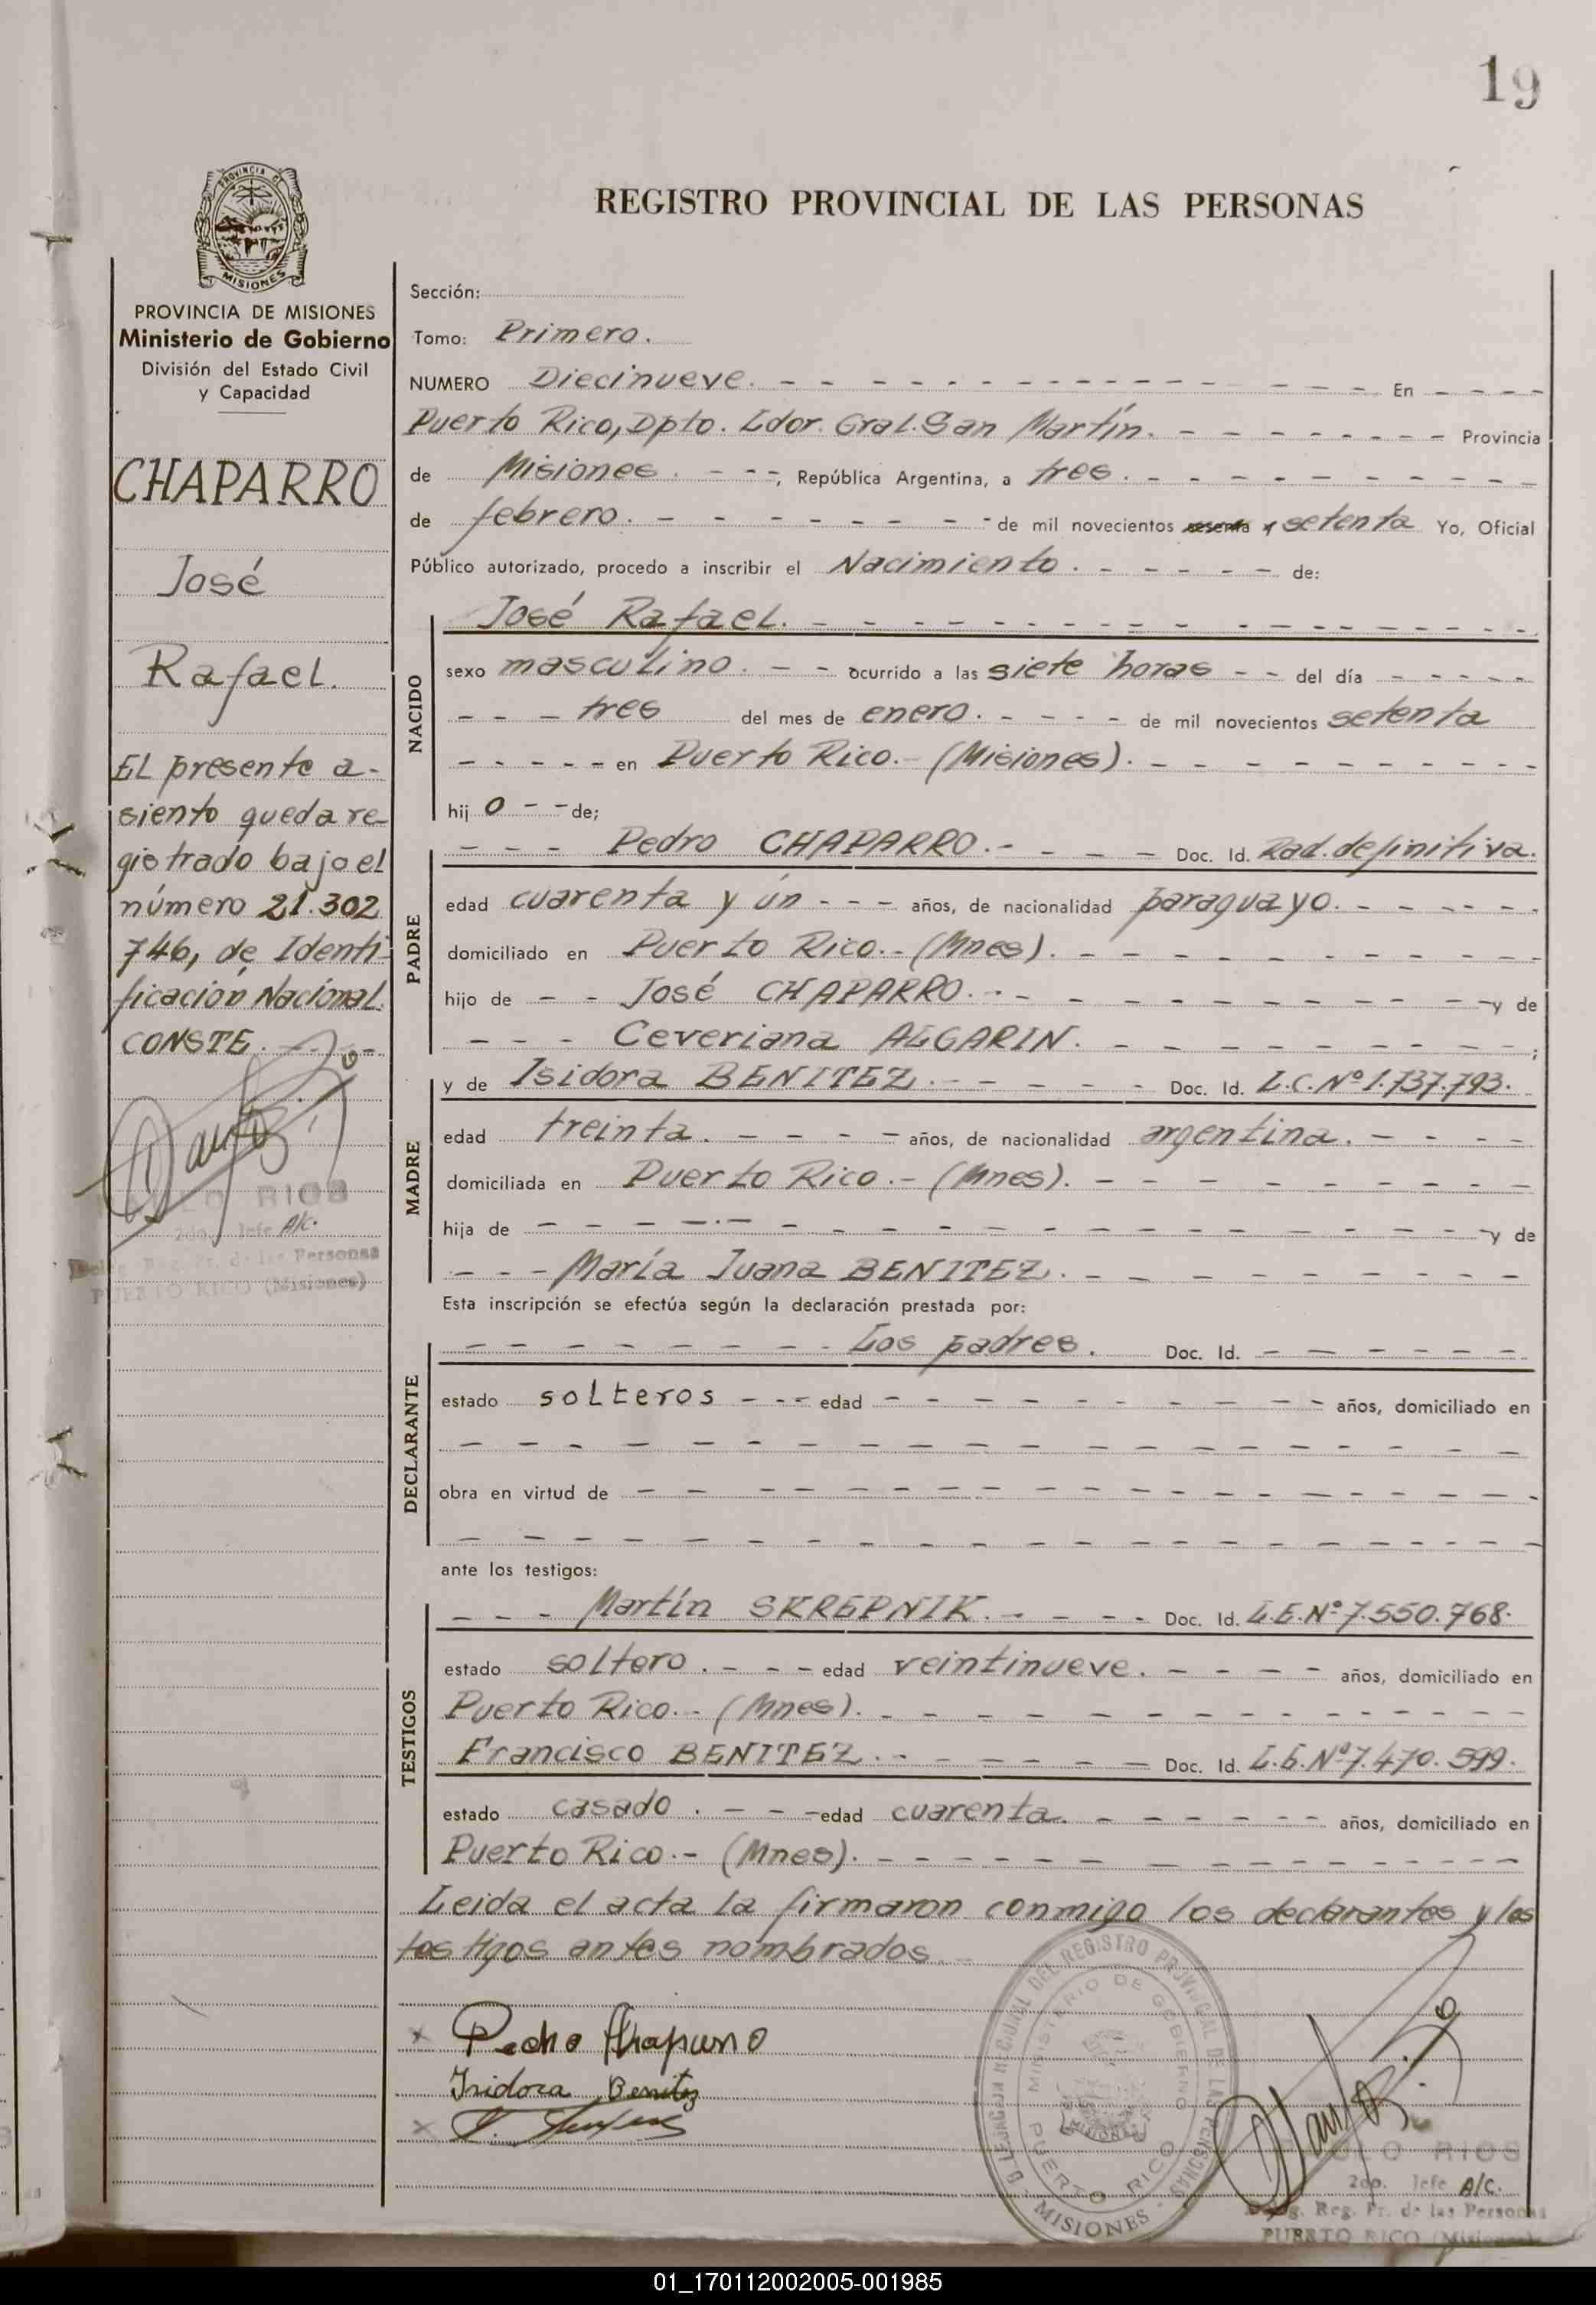 19
PROVINCIA DE
MISIONES
REGISTRO PROVINCIAL DE LAS PERSONAS
PROVINCIA DE MISIONES
Ministerio de Gobierno
División del Estado Civil
y Capacidad
CHAPARRO
José
Rafael.
El presente a-
siento queda re-
gistrado bajo el
número 21.302
746, de Identi-
ficación Nacional.
CONSTE.
RIOS
2do. Jefe A/C.
Reg. Pr. de las Personas
PUERTO RICO (Misiones)
Sección:
Tomo: Primero.
NUMERO Diecinueve. En
Puerto Rico, Dpto. Ldor. Gral. San Martín. Provincia
de Misiones. República Argentina, a tres.
de febrero. de mil novecientos sesenta y setenta Yo, Oficial
Público autorizado, procedo a inscribir el Nacimiento. de:
José Rafael.
NACIDO
sexo masculino. ocurrido a las siete horas del día
tres del mes de enero. de mil novecientos setenta
en Puerto Rico.- (Misiones).
hij o de;
PADRE
Pedro CHAPARRO.- Doc. Id. Rad. definitiva.
edad cuarenta y ún años, de nacionalidad paraguayo.
domiciliado en Puerto Rico.- (Mnes).
hijo de José CHAPARRO. y de
Ceveriana ALGARIN. ;
MADRE
y de Isidora BENITEZ. Doc. Id. L.C.Nº 1.737.793.
edad treinta. años, de nacionalidad argentina.
domiciliada en Puerto Rico.- (Mnes).
hija de y de
María Juana BENITEZ.
Esta inscripción se efectúa según la declaración prestada por:
DECLARANTE
Los padres. Doc. Id.
estado solteros edad años, domiciliado en
obra en virtud de
ante los testigos:
TESTIGOS
Martín SKREPNIK. Doc. Id. L.E.Nº 7.550.768.
estado soltero. edad veintinueve. años, domiciliado en
Puerto Rico.- (Mnes).
Francisco BENITEZ. Doc. Id. L.E.Nº 7.470.599.
estado casado. edad cuarenta. años, domiciliado en
Puerto Rico.- (Mnes).
Leida el acta la firmaron conmigo los declarantes y los
testigos antes nombrados.
Pedro Chaparro
Isidora Benitez
DELEGACION REGIONAL DEL REGISTRO PROVINCIAL DE LAS PERSONAS
MINISTERIO DE GOBIERNO
PUERTO RICO
MISIONES
RIOS
2do. Jefe A/C.
Reg. Pr. de las Personas
PUERTO RICO (Misiones)
01_170112002005-001985